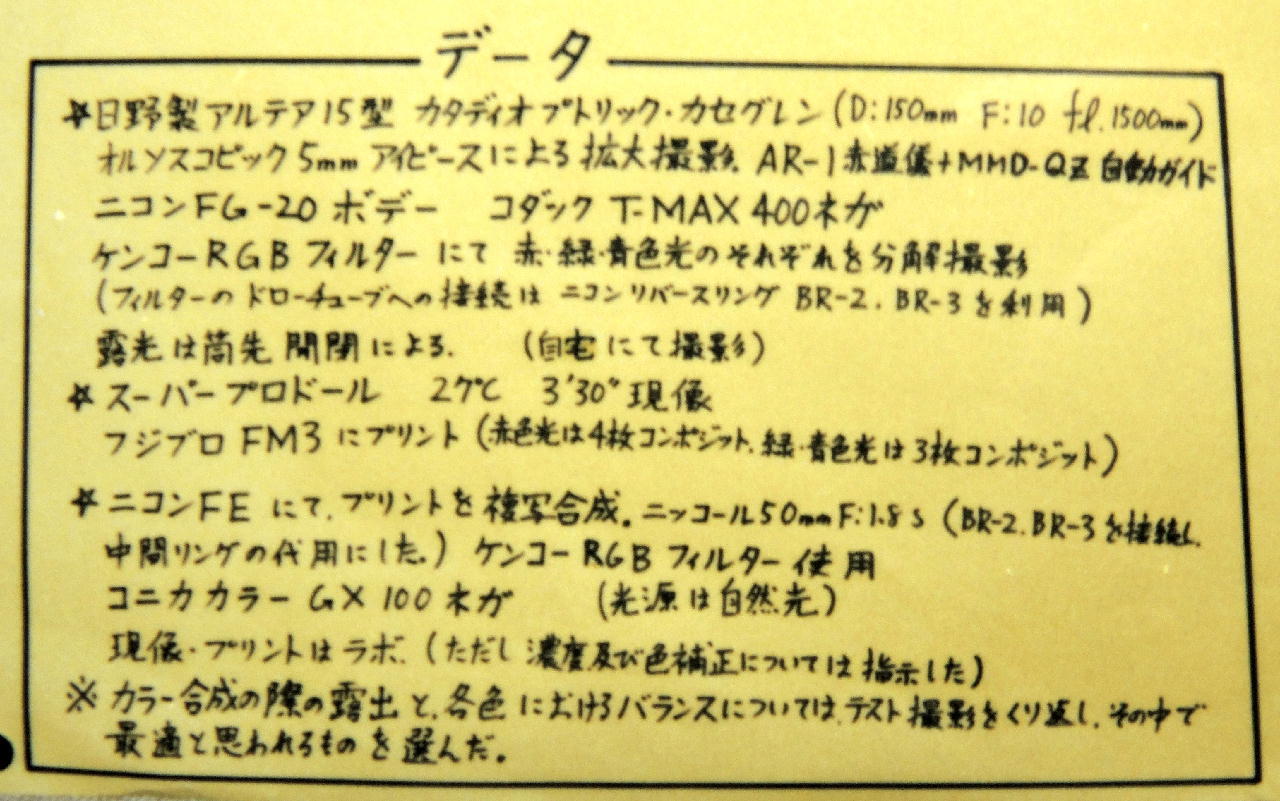 データ
☆日野製アルテア15型 カタディオプトリック・カセグレン(D:150mm F:10 fl.1500mm)
オルソスコピック5mmアイピースによる拡大撮影. AR-1赤道儀+MMD-QZ 自動ガイド
ニコンFG-20ボデー コダック T-MAX 400ネガ
ケンコーRGBフィルターにて 赤・緑・青色光のそれぞれを分解撮影
(フィルターのドローチューブへの接続は ニコンリバースリング BR-2. BR-3を利用)
露光は筒先開閉による. (自宅にて撮影)
☆スーパープロドール 27℃ 3'30"現像
フジブロ FM3 にプリント(赤色光は4枚コンポジット. 緑・青色光は3枚コンポジット)
☆ニコンFE にて. プリントを複写合成. ニッコール50mmF:1.8s (BR-2. BR-3を接続し.
中間リングの代用にした.) ケンコーRGBフィルター使用
コニカカラーGX 100ネガ (光源は自然光)
現像・プリントはラボ. (ただし濃度及び色補正については指示した)
※カラー合成の際の露出と、各色におけるバランスについては、テスト撮影をくり返し、その中で
最適と思われるものを選んだ.